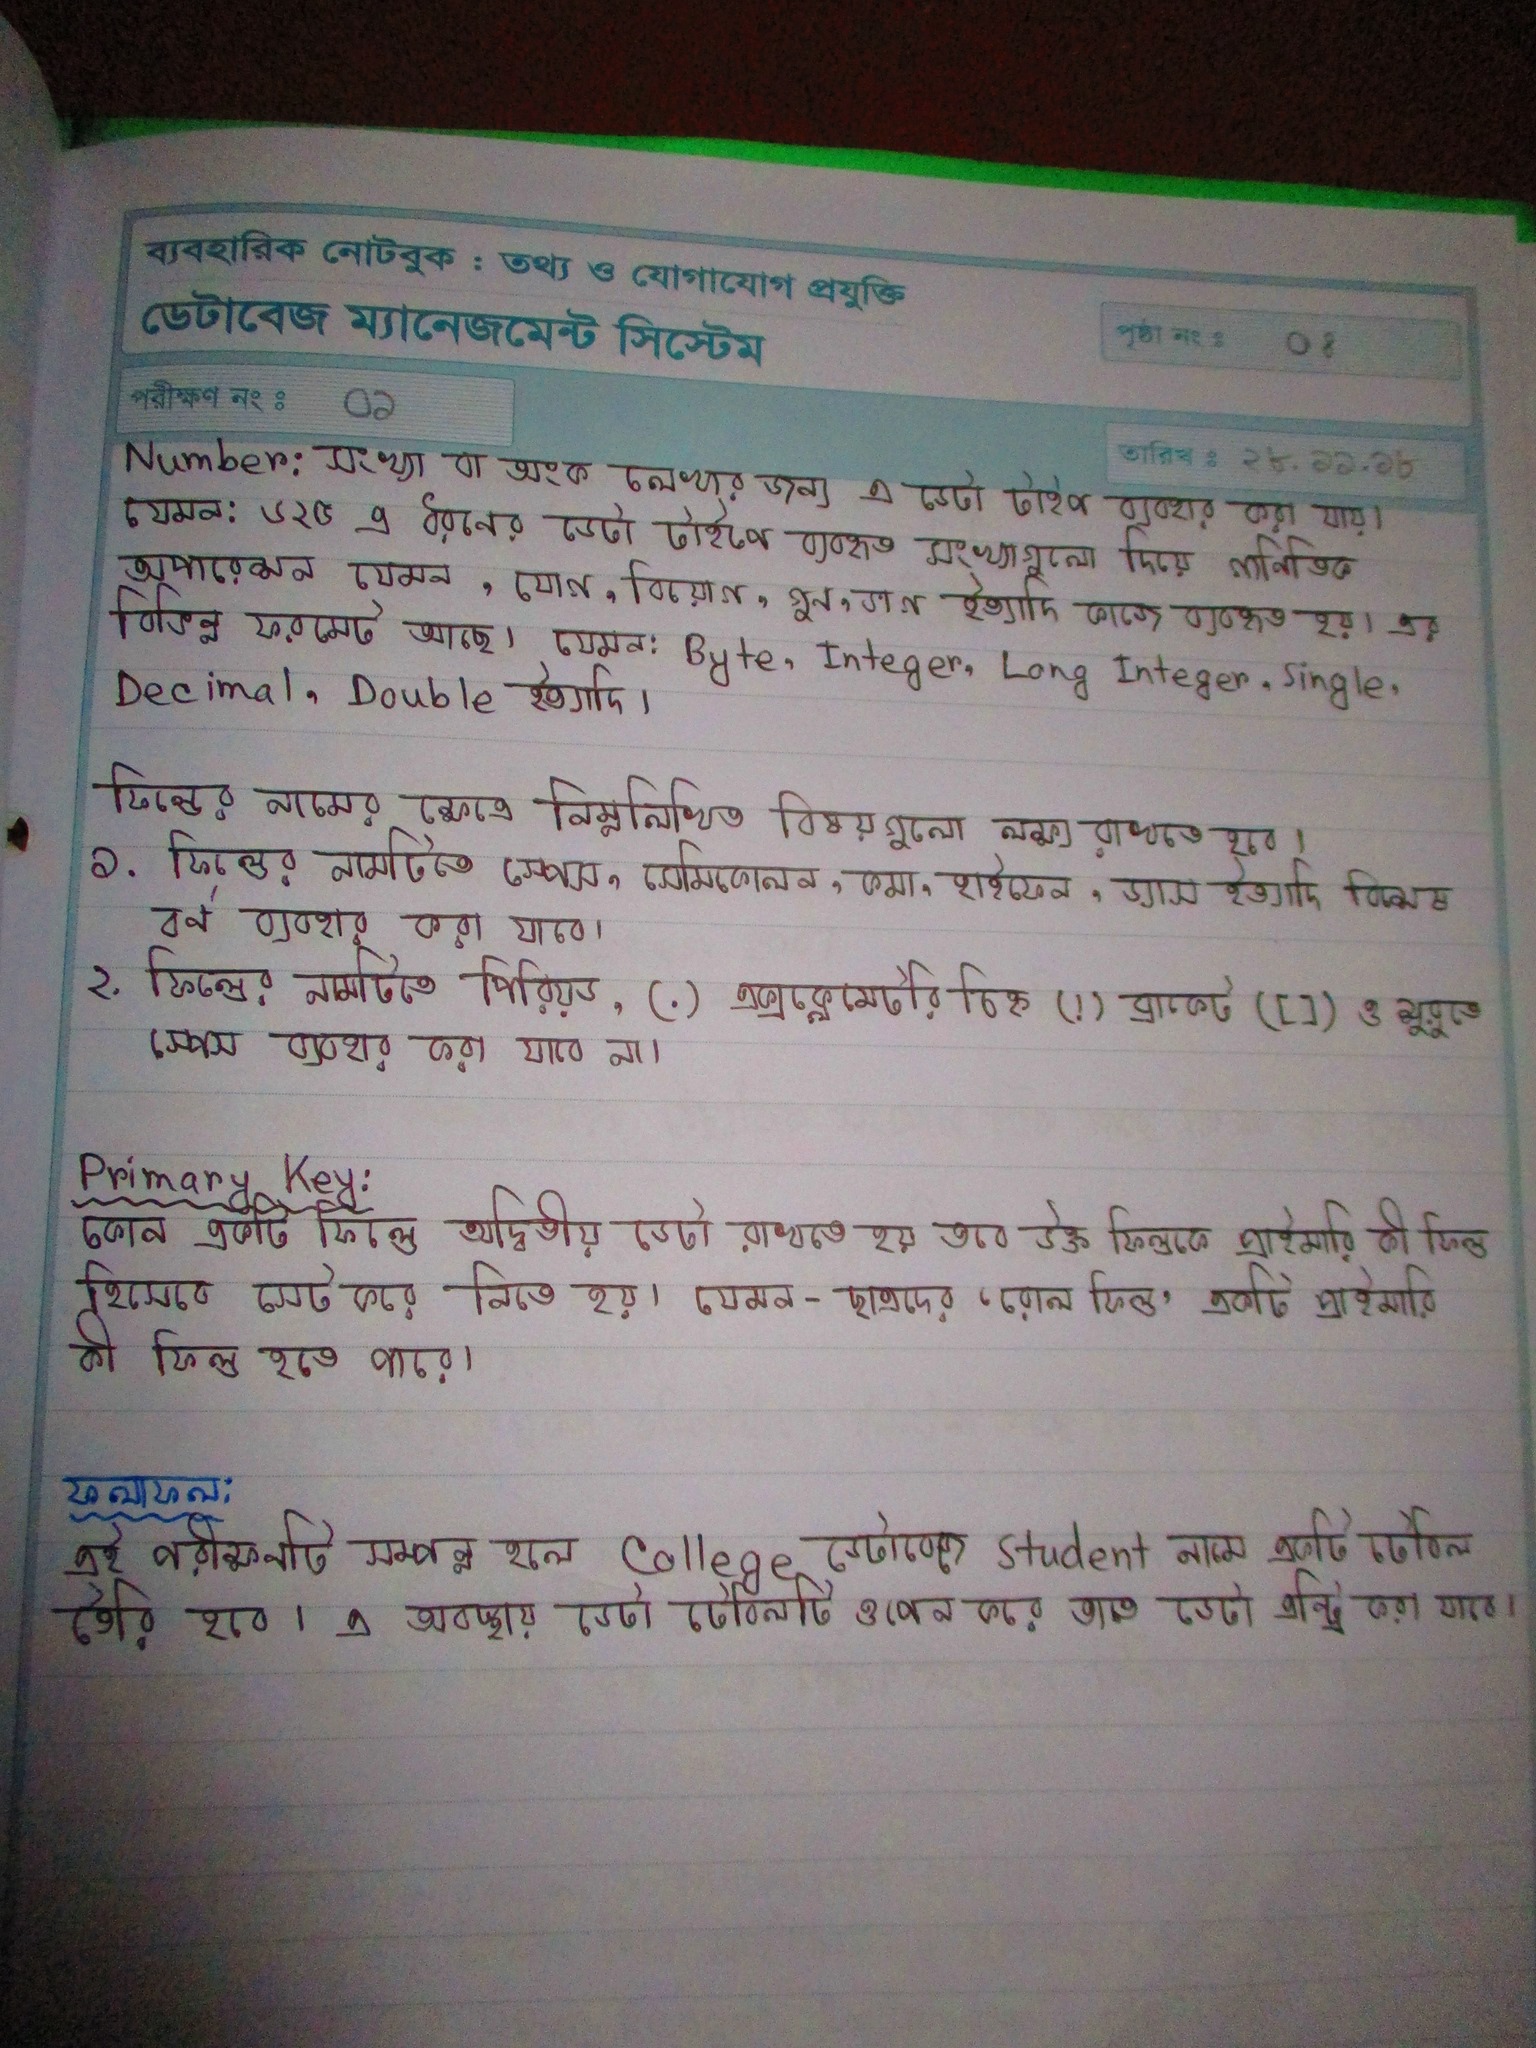 ব্যবহারিক নোটবুক : তথ্য ও যোগাযোগ প্রযুক্তি
ডেটাবেজ ম্যানেজমেন্ট সিস্টেম
পৃষ্ঠা নং : ০৪
পরীক্ষণ নং : ০১
তারিখ : ২৮.১১.১৮
Number: সংখ্যা বা অংক লেখার জন্য এ ডেটা টাইপ ব্যবহার করা যায়।
যেমন: ৬২৫ এ ধরনের ডেটা টাইপে ব্যবহৃত সংখ্যাগুলো দিয়ে গানিতিক
অপারেশন যেমন, যোগ, বিয়োগ, গুন, ভাগ ইত্যাদি কাজে ব্যবহৃত হয়। এর
বিভিন্ন ফরমেট আছে। যেমন: Byte, Integer, Long Integer, Single,
Decimal, Double ইত্যাদি।
ফিল্ডের নামের ক্ষেত্রে নিম্নলিখিত বিষয়গুলো লক্ষ্য রাখতে হবে।
১. ফিল্ডের নামটিতে স্পেস, সেমিকোলন, কমা, হাইফেন, ড্যাস ইত্যাদি বিশেষ
বর্ন ব্যবহার করা যাবে।
২. ফিল্ডের নামটিতে পিরিয়ড, (.) চিহ্ন (!) ব্রাকেট ([]) ও শুরুতে
স্পেস ব্যবহার করা যাবে না।
Primary Key:
কোন একটি ফিল্ডে অদ্বিতীয় ডেটা রাখতে হয় তবে উক্ত ফিল্ডকে প্রাইমারি কী ফিল্ড
হিসেবে সেট করে নিতে হয়। যেমন- ছাত্রদের 'রোল ফিল্ড' একটি প্রাইমারি
কী ফিল্ড হতে পারে।
ফলাফল:
এই পরীক্ষনটি সম্পন্ন হলে College ডেটাবেজে Student নামে একটি টেবিল
তৈরি হবে। এ অবস্থায় ডেটা টেবিলটি ওপেন করে তাতে ডেটা এন্ট্রি করা যাবে।